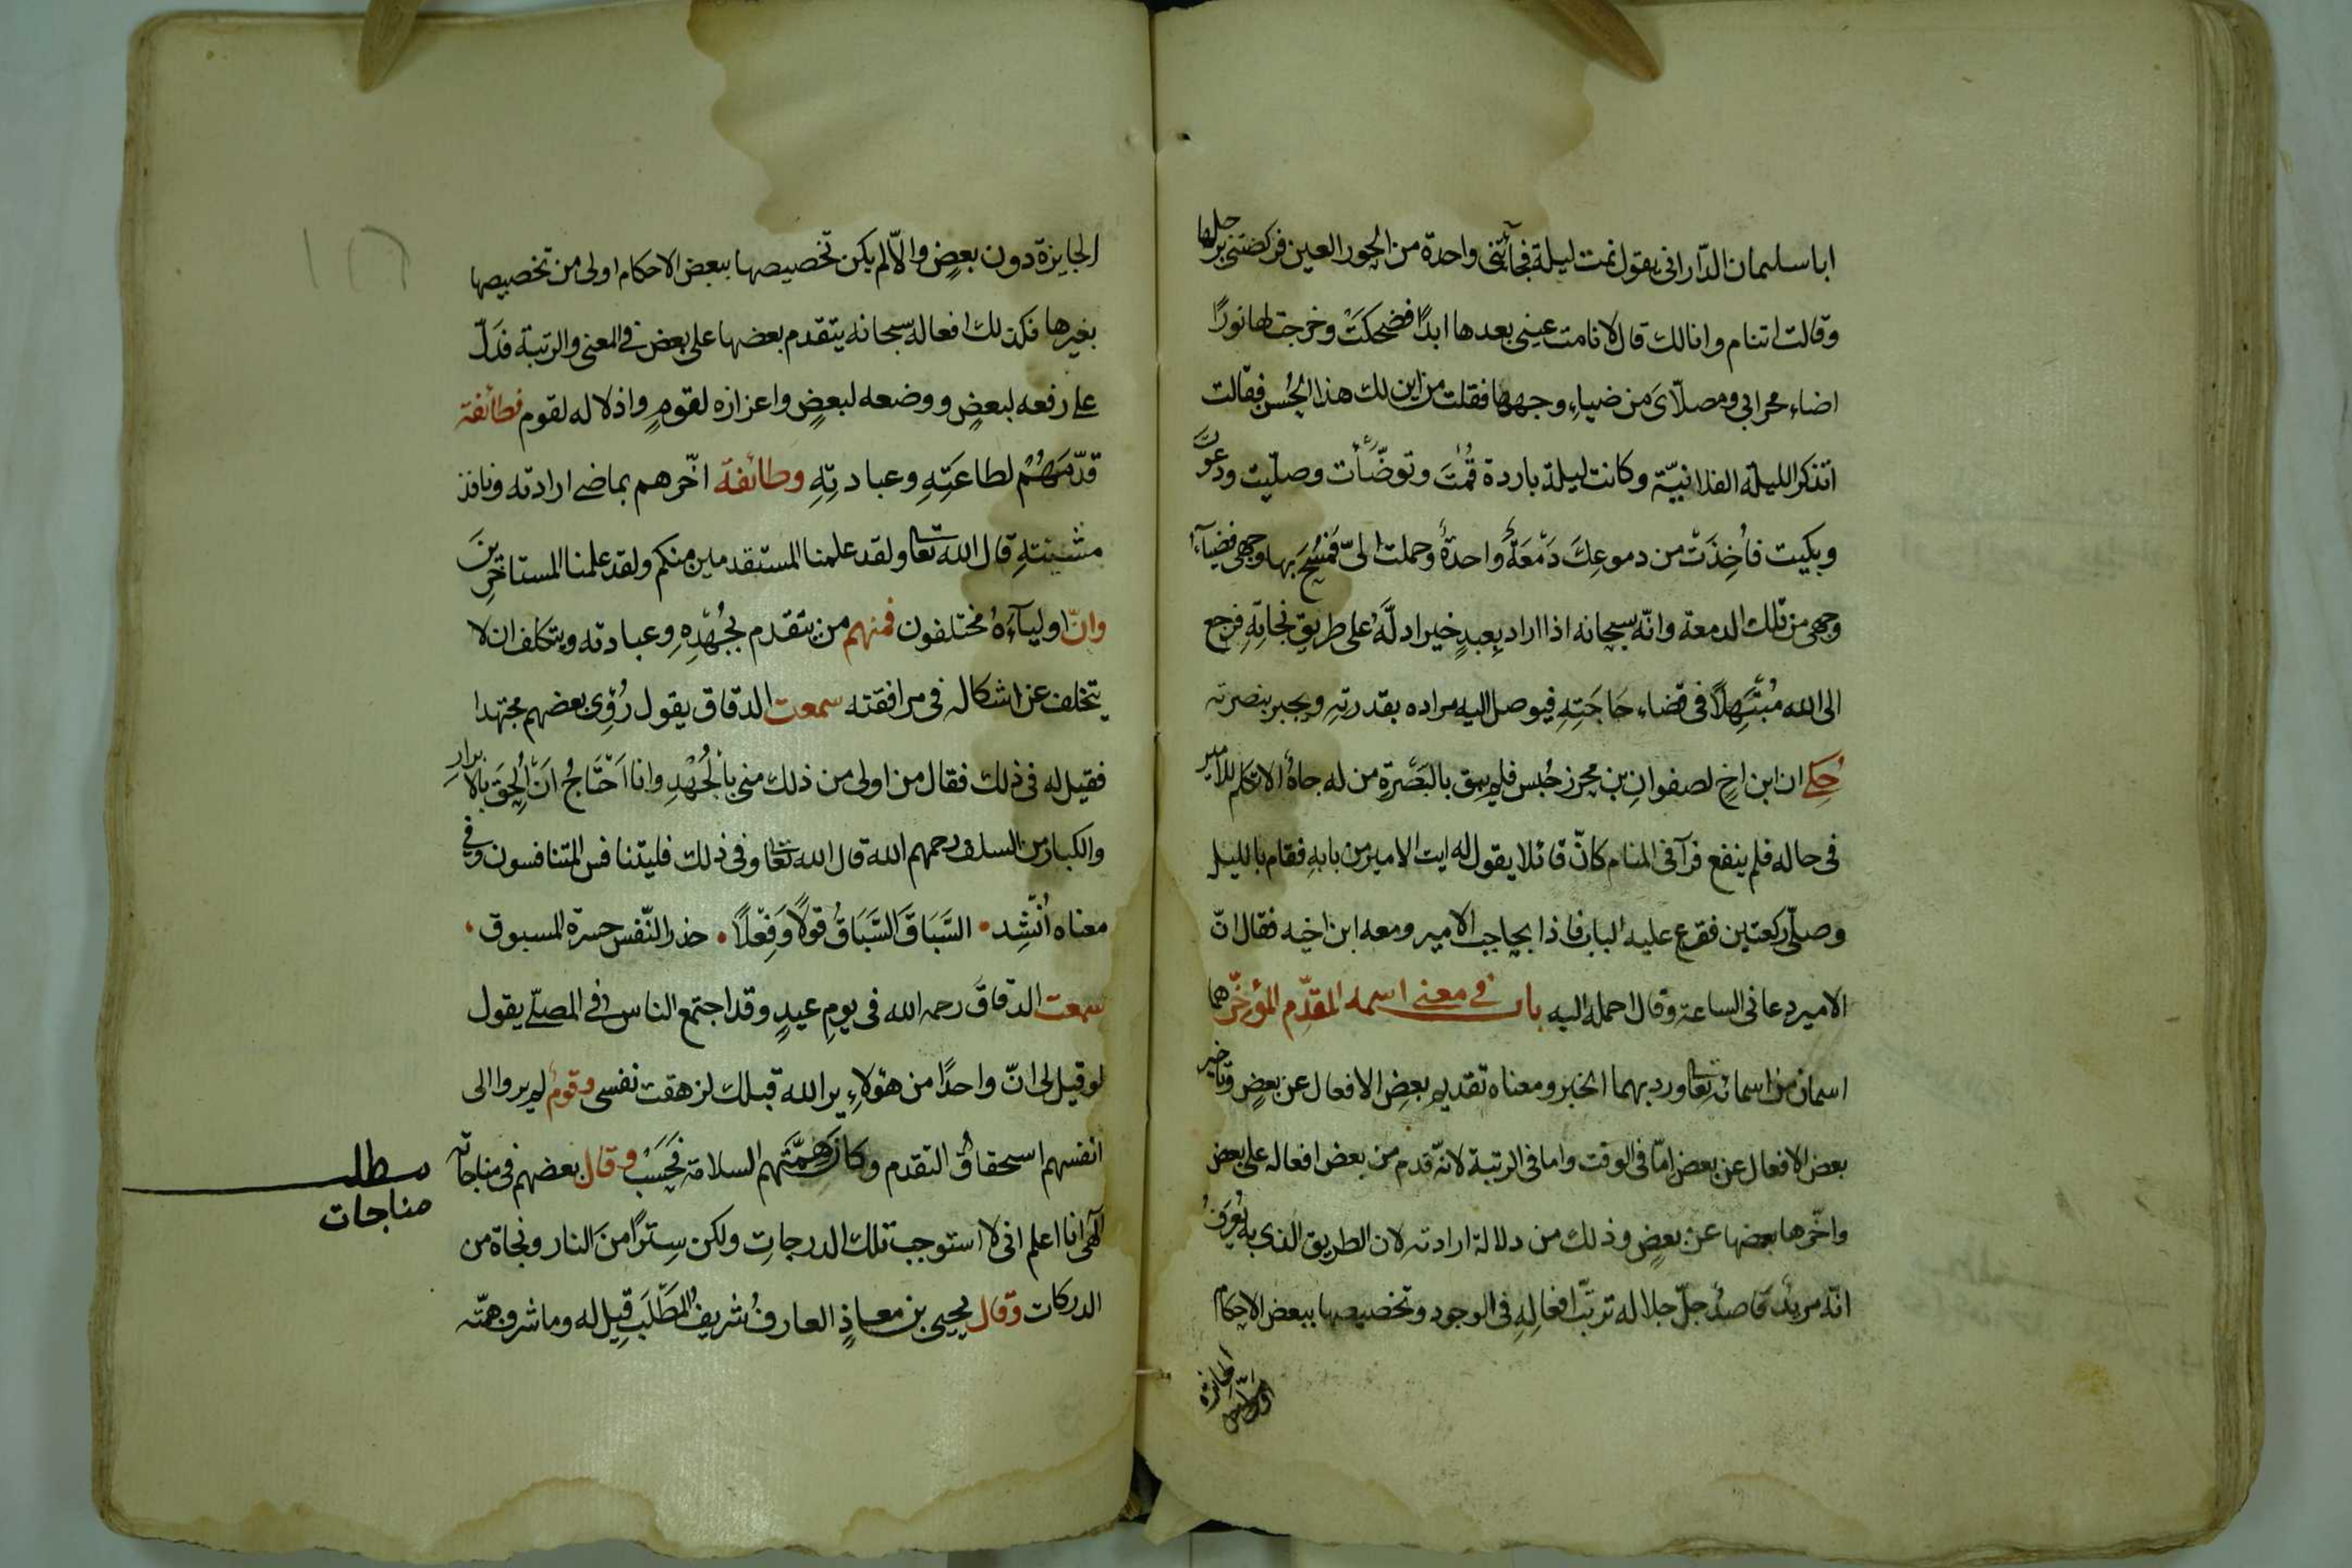 ابا سليمان الدّاراني يقول نمت ليلة فجآئتني واحدة من الحور العين فركضتني برجلها
وقالت اتنام وانا لك قال لا نامت عيني بعدها ابدًا فضحكَتْ وخرجت لها نورًا
اضاء محرابي ومصلّاىَ من ضياءِ وجهها فقلت من اين لك هذا الحُسن فقالت
اتذكر الليلة الفلانيّة وكانت ليلة باردة قُمْتَ وتوضّأت وصلّيت ودعوتَ
وبكيت فأُخِذَتْ من دموعِكَ دَمْعَةٌ واحدةٌ وحملت الىّ فَمُسِحَ بها وجهى فضيآء
وجهى من تلك الدمعة وانّه سبحانه اذا اراد بِعبدٍ خيرا دلَّهُ على طريق نجاتِهِ فرجع
الى الله مُبْتَهِلاً فى قضاء حَاجَتِهِ فيوصل اليه مراده بقدرتِهِ ويجبر بنصرته
حُكِىَ ان ابن اخٍ لصفوانِ بن محرز حُبس فلم يبق بالبَصْرَةِ من له جاهٌ الا تكلم للامير
فى حاله فلم ينفع فرآ فى المنام كانّ قائلا يقول له ايت الامير من بابهِ فقام بالليل
وصلّى ركعتين فقرع عليه الباب فاذا بحاجب الامير ومعه ابن اخيه فقال انّ
الامير دعانى الساعة وقال احمله اليه باب فى معنى اسمه المقدِّم المؤخّر هما
اسمان من اسمائه تعالى ورد بهما الخبر ومعناه تقديم بعضِ الافعال عن بعضٍ وتاخير
بعض الافعال عن بعض امّا فى الوقت واما فى الرتبة لانّه قدم من بعض افعاله على بعض
واخّرها بعضها عن بعضٍ وذلك من دلالة ارادته لان الطريق الذى به يُعْرَفُ
انّه مريدٌ قاصدٌ جلّ جلاله ترتّب افعالِهِ فى الوجود وتخصيصها ببعض الاحكام
الجائزة
الجايزة دون بعضٍ والّا لم يكن تخصيصها ببعض الاحكام اولى من تخصيصها
بغيرها فكذلك افعاله سبحانه يتقدم بعضها على بعض فى المعنى والرتبة فدَلّ
على رفعه لبعضٍ ووضعه لبعضٍ واعزازه لقومٍ واذلاله لقوم فطائفة
قدّمَهُمْ لطاعَتِهِ وعبادتِهِ وطائفة اخّرهم بماضى ارادته ونافذ
مشيئتهِ قال الله تعالى ولقد علمنا المستقدمين منكم ولقد علمنا المستاخرِينَ
وانّ اوليآءهُ مختلفون فمنهم من يتقدم بجُهْدِهِ وعبادته ويتكلف ان لا
يتخلف عن اشكاله فى مرافقته سمعت الدقاق يقول رُؤِى بعضهم مجتهدا
فقيل له فى ذلك فقال من اولى من ذلك منى بالْجَهْدِ وانا اَحْتَاجُ اَنْ اُلحِقَ بالابرارِ
والكبار من السلف رحمهم الله قال الله تعالى وفى ذلك فليتنافس المتنافسون وفى
معناه اُنشِد • السَّبَاقَ السَّبَاقُ قولاً وَفِعْلاً • حذر النّفس حسرة المسبوق •
سمعت الدقاق رحمه الله فى يومِ عيدٍ وقد اجتمع الناس فى المصلّى يقول
لو قيل لى انّ واحدًا من هؤلاءِ يرا الله قبلك لزهقت نفسى وقومٌ لم يروا الى
انفسهم استحقاق التقدم وكان هِمَّتهم السلامة فَحَسَبْ وقال بعضهم فى مناجاته
الٓهى انا اعلم انى لا استوجب تلك الدرجاتِ ولكن سِترًا منَ النار ونجاة من
الدركات وقال يحيى بن معاذٍ العارفُ شريفُ المَطْلَبِ قيل له وما شرف همّته
مطلب
مناجات